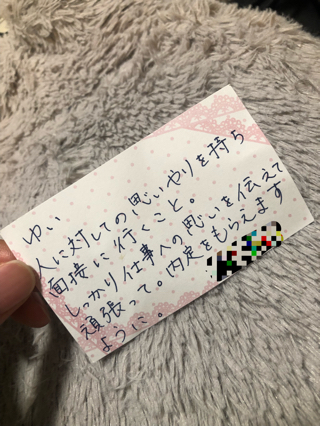 ゆい
人に対しての思いやりを持ち
面接に行くこと。
しっかり仕事への思いを伝えて
頑張って。内定をもらえます
ように。